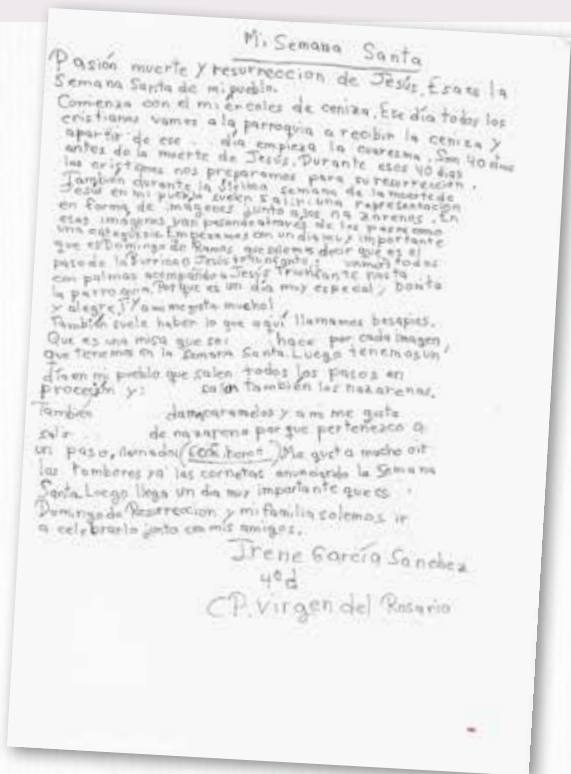 Mi Semana Santa
Pasión muerte y resurreccion de Jesús. Esa es la
Semana Santa de mi pueblo.
Comienza con el miércoles de ceniza. Ese día todos los
cristianos vamos a la parroquia a recibir la ceniza y
apartir de ese día empieza la cuaresma. Son 40 días
antes de la muerte de Jesús. Durante esos 40 dias
los cristianos nos preparamos para su resurrección.
También durante la última semana de la muerte de
Jesús en mi pueblo suelen salir una representación
en forma de imágenes junto a los nazarenos. En
esas imágenes van pasando através de los pasos como
una catequesis. Empezamos con un dia muy importante
que es Domingo de Ramos que solemos decir que es el
paso de la Burrica o Jesús triunfante: vamos todos
con palmas acompañdo a Jesús Triunfante hasta
la parroquia. Porque es un día muy especial, bonito
y alegre. ¡Y a mi me gusta mucho!
También suele haber lo que aquí llamamos besapies.
Que es una misa que se hace por cada imagen,
que tenemos en la Semana Santa. Luego tenemos un
día en mi pueblo que salen todos los pasos en
proceción y: salen también los nazarenos.
También dan caramelos y a mi me gusta
salir de nazareno porque pertenezco a
un paso, llamado Me gusta mucho oir
los tambores y a las cornetas anunciando la Semana
Santa. Luego llega un dia muy importante que es
Domingo de Resurreccion y mi familia solemos ir
a celebrarlo junto con mis amigos.
Irene García Sanchez
4º d
C.P. Virgen del Rosario